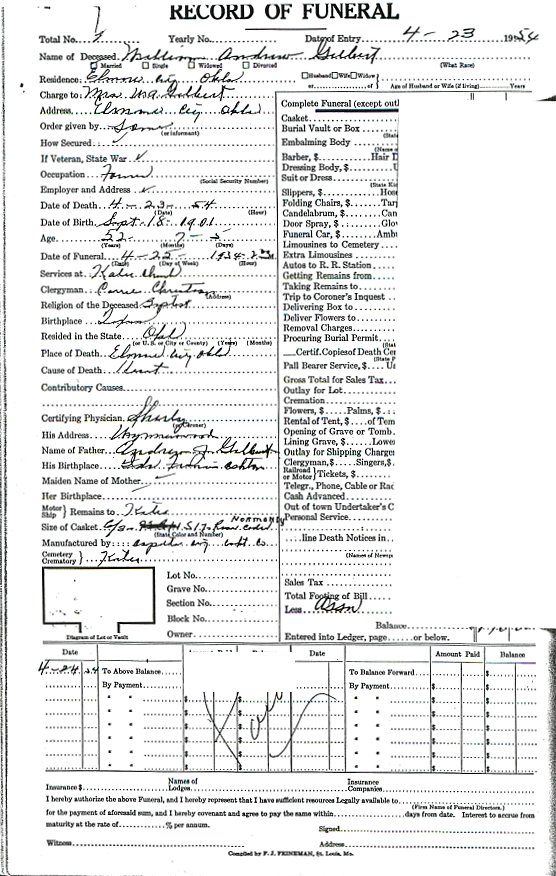 RECORD OF FUNERAL
Total No. Yearly No. Date of Entry 4-23 1954
Name of Deceased William Andrew Gilbert
Married Single Widowed Divorced (What Race)
Residence: Elmore City Okla Husband Wife Widow
or of Age of Husband or Wife (if living) Years
Charge to: Mrs. WA Gilbert
Address Elmore City Okla
Order given by
(or informant)
How Secured ✓
If Veteran, State War ✓
Occupation
(Social Security Number)
Employer and Address ✓
Date of Death 4-23-54
(Date) (Hour)
Date of Birth Sept-18-1901
Age 52 7 5
(Years) (Months) (Days)
Date of Funeral 4-25-
(Date) (Day of Week) (Hour)
Services at Katie
Clergyman
(Address)
Religion of the Deceased Baptist
Birthplace
Resided in the State Okla
(or U. S. or City or County) (Years) (Months)
Place of Death Elmore City Okla
Cause of Death Heart
Contributory Causes
Certifying Physician
(or Coroner)
His Address Wynnewood
Name of Father Andrew J. Gilbert
His Birthplace
Maiden Name of Mother
Her Birthplace
Motor Ship } Remains to Katie
Size of Casket 6/3 517 NORMANDY
(State Color and Number)
Manufactured by
Cemetery Crematory } Katie
Diagram of Lot or Vault
Lot No.
Grave No.
Section No.
Block No.
Owner
Complete Funeral (except out
Casket
Burial Vault or Box
(State
Embalming Body
(Name o
Barber, $ Hair D
Dressing Body, $ U
Suit or Dress
(State Ki
Slippers, $ Hos
Folding Chairs, $ Tar
Candelabrum, $ Can
Door Spray, $ Glo
Funeral Car, $ Amb
Limousines to Cemetery
Extra Limousines
Autos to R. R. Station
Getting Remains from
Taking Remains to
Trip to Coroner's Inquest
Delivering Box to
Deliver Flowers to
Removal Charges
Procuring Burial Permit
(Stat
Certif. Copies of Death Ce
(State P
Pall Bearer Service, $ Us
Gross Total for Sales Tax
Outlay for Lot
Cremation
Flowers, $ Palms, $
Rental of Tent, $ of Tem
Opening of Grave or Tomb
Lining Grave, $ Lowe
Outlay for Shipping Charges
Clergyman, $ Singers, $
Railroad or Motor } Tickets, $
Telegr., Phone, Cable or Rad
Cash Advanced
Out of town Undertaker's C
Personal Service
line Death Notices in
(Names of Newsp
Sales Tax
Total Footing of Bill
Less
Balance
Entered into Ledger, page or below.
Date Date Amount Paid Balance
4-24 54 To Above Balance $ To Balance Forward $
By Payment $ By Payment $
" " $ " " $
" " $ " " $
" " $ " " $
" " $ " " $
" " $ " " $
Insurance $ Names of Lodges Insurance Companies
I hereby authorize the above Funeral, and I hereby represent that I have sufficient resources Legally available to
(Firm Name of Funeral Directors.)
for the payment of aforesaid sum, and I hereby covenant and agree to pay the same within days from date. Interest to accrue from
maturity at the rate of % per annum.
Signed
Witness Address
Compiled by F. J. FEINEMAN, St. Louis, Mo.